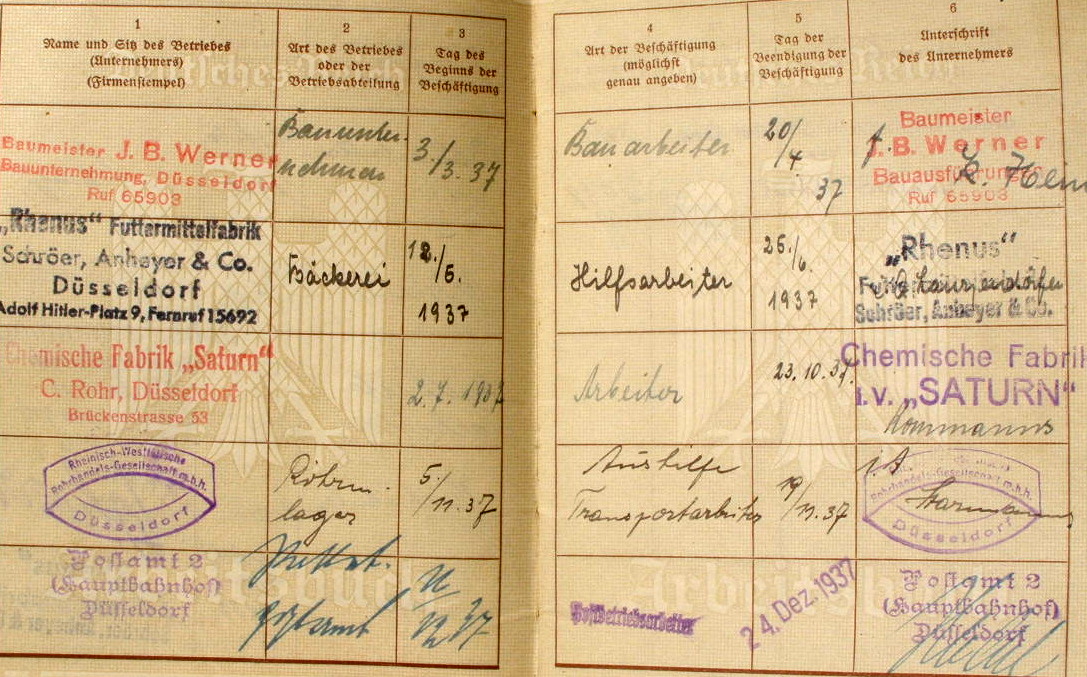 1
Name und Sitz des Betriebes
(Unternehmers)
(Firmenstempel)
2
Art des Betriebes
oder der
Betriebsabteilung
3
Tag des
Beginns der
Beschäftigung
4
Art der Beschäftigung
(möglichst
genau angeben)
5
Tag der
Beendigung der
Beschäftigung
6
Unterschrift
des Unternehmers
Baumeister J. B. Werner
Bauunternehmung, Düsseldorf
Ruf 65903
Bauunter-
nehmen
3./3. 37
Bauarbeiter
20/4
37
Baumeister
J. B. Werner
Bauausführungen
Ruf 65903
„Rhenus“ Futtermittelfabrik
Schröer, Anheyer & Co.
Düsseldorf
Adolf Hitler-Platz 9, Fernruf 15692
Bäckerei
12./6.
1937
Hilfsarbeiter
26./6.
1937
„Rhenus“
Schröer, Anheyer & Co.
Chemische Fabrik „Saturn“
C. Rohr, Düsseldorf
Brückenstrasse 53
2. 7. 1937
Arbeiter
23. 10. 37.
Chemische Fabrik
i.V. „SATURN“
Rheinisch-Westfälische
Rohrhandels-Gesellschaft m.b.H.
Düsseldorf
Röhren-
lager
5./11. 37
Aushilfe
Transportarbeiter
19/11. 37
Rohrhandels-Gesellschaft m.b.H.
Düsseldorf
Postamt 2
(Hauptbahnhof)
Düsseldorf
Postbetriebsarbeiter
24. Dez. 1937
Postamt 2
(Hauptbahnhof)
Düsseldorf